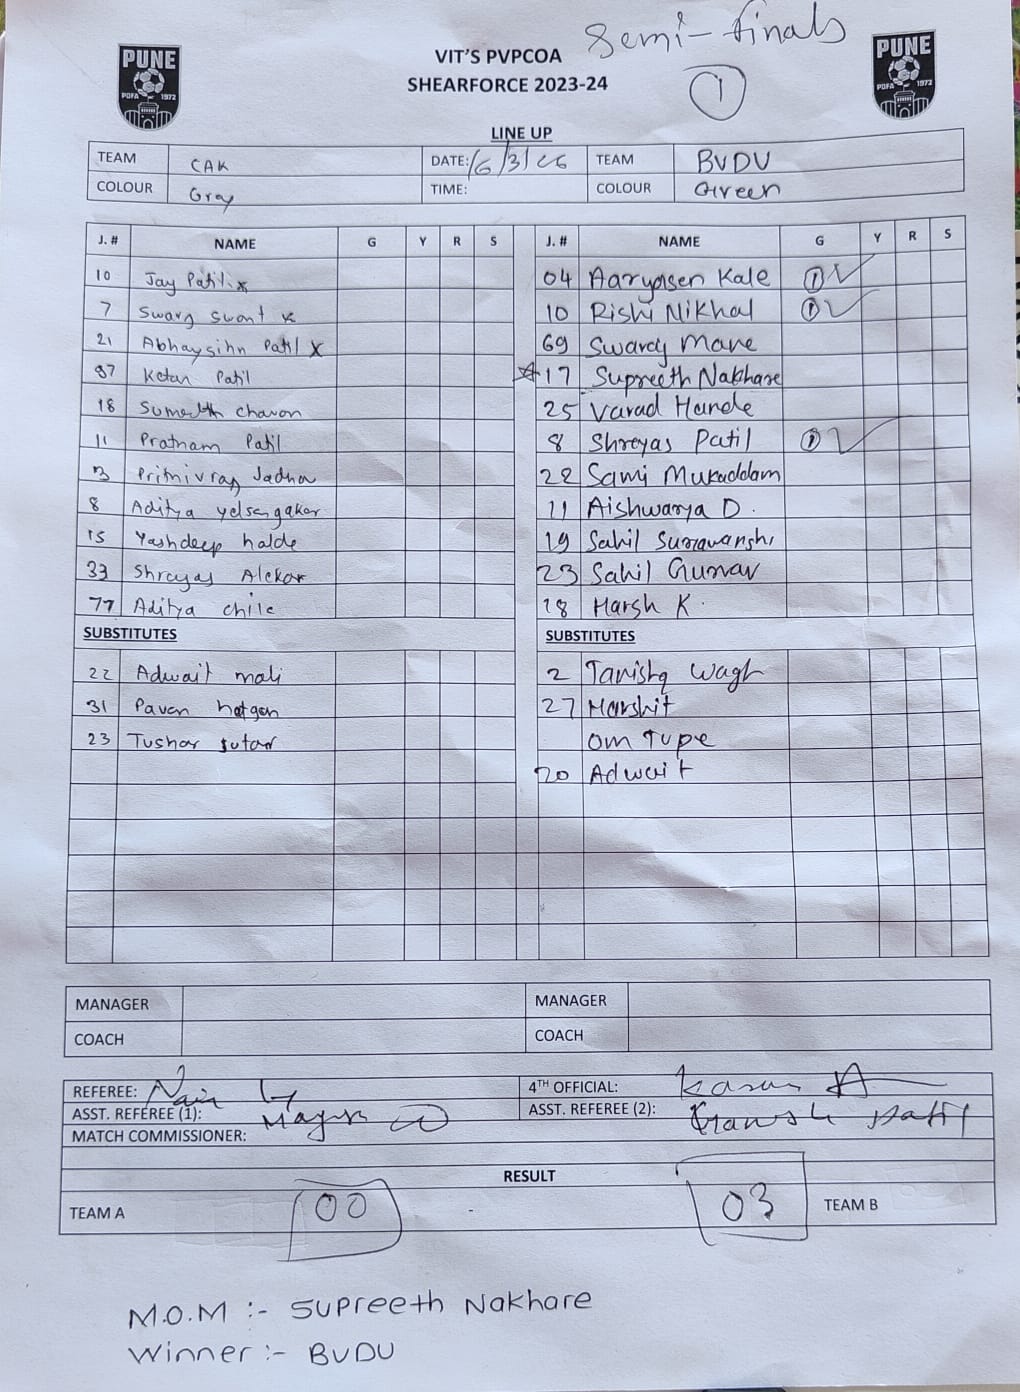 Semi-finals
PUNE
PDFA 1972
VIT'S PVPCOA
SHEARFORCE 2023-24
1
PUNE
PDFA 1972
LINE UP
TEAM CAK DATE: 16/3/ TEAM BVDU
COLOUR Gray TIME: COLOUR Green
J. # NAME G Y R S J. # NAME G Y R S
10 Jay Patil x 04 Aaryasen Kale 1 ✓
7 Swaraj Swant x 10 Rishi Nikhal 1 ✓
21 Abhaysihn Patil x 69 Swaraj Mane
87 Ketan Patil ☆ 17 Supreeth Nakhare
18 Sumedth chavan 25 Varad Hande
11 Pratham Patil 8 Shreyas Patil 1 ✓
3 Prithviraj Jadhav 22 Sami Mukaddam
8 Aditya yelsangakar 11 Aishwarya D.
15 Yashdeep halde 19 Sahil Suravanshi
33 Shreyas Alekar 23 Sahil Gurav
77 Aditya chile 18 Harsh K.
SUBSTITUTES SUBSTITUTES
22 Adwait mali 2 Tanishq Wagh
31 Pavan hatgan 27 Harshit
23 Tushar sutar Om Tupe
20 Adwait
MANAGER MANAGER
COACH COACH
REFEREE: 4TH OFFICIAL: Karan
ASST. REFEREE (1): ASST. REFEREE (2): Patil
MATCH COMMISSIONER:
RESULT
TEAM A 00 - 03 TEAM B
M.O.M :- Supreeth Nakhare
Winner :- BVDU